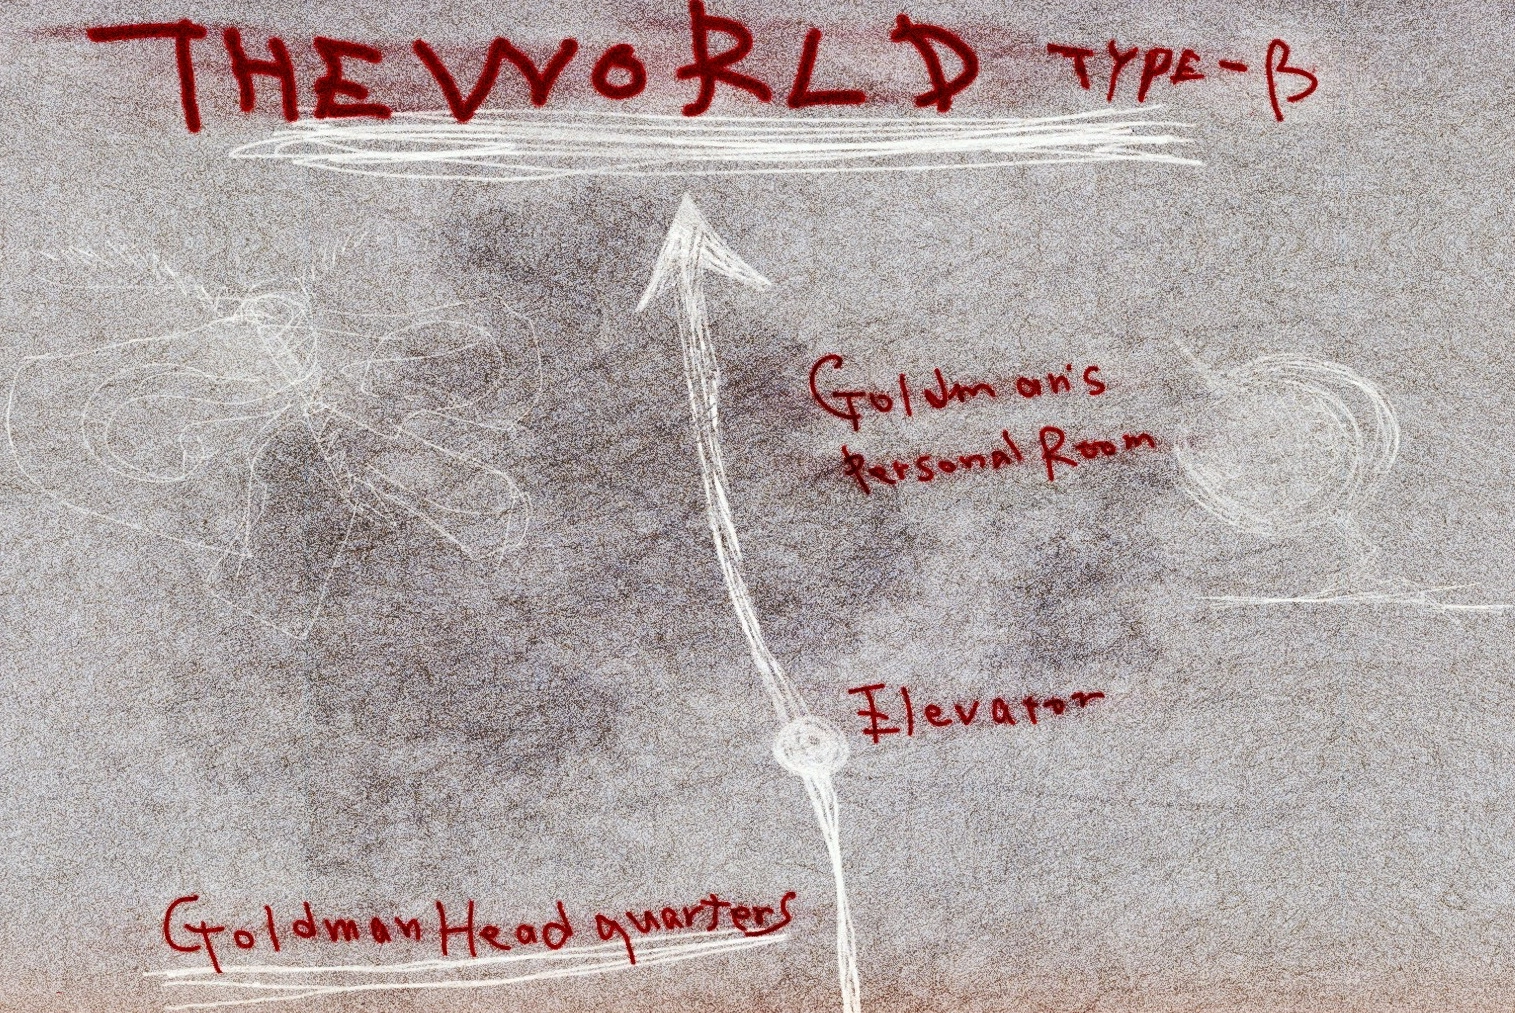 THE WORLD TYPE-β
Goldman's
Personal Room
Elevator
Goldman Headquarters